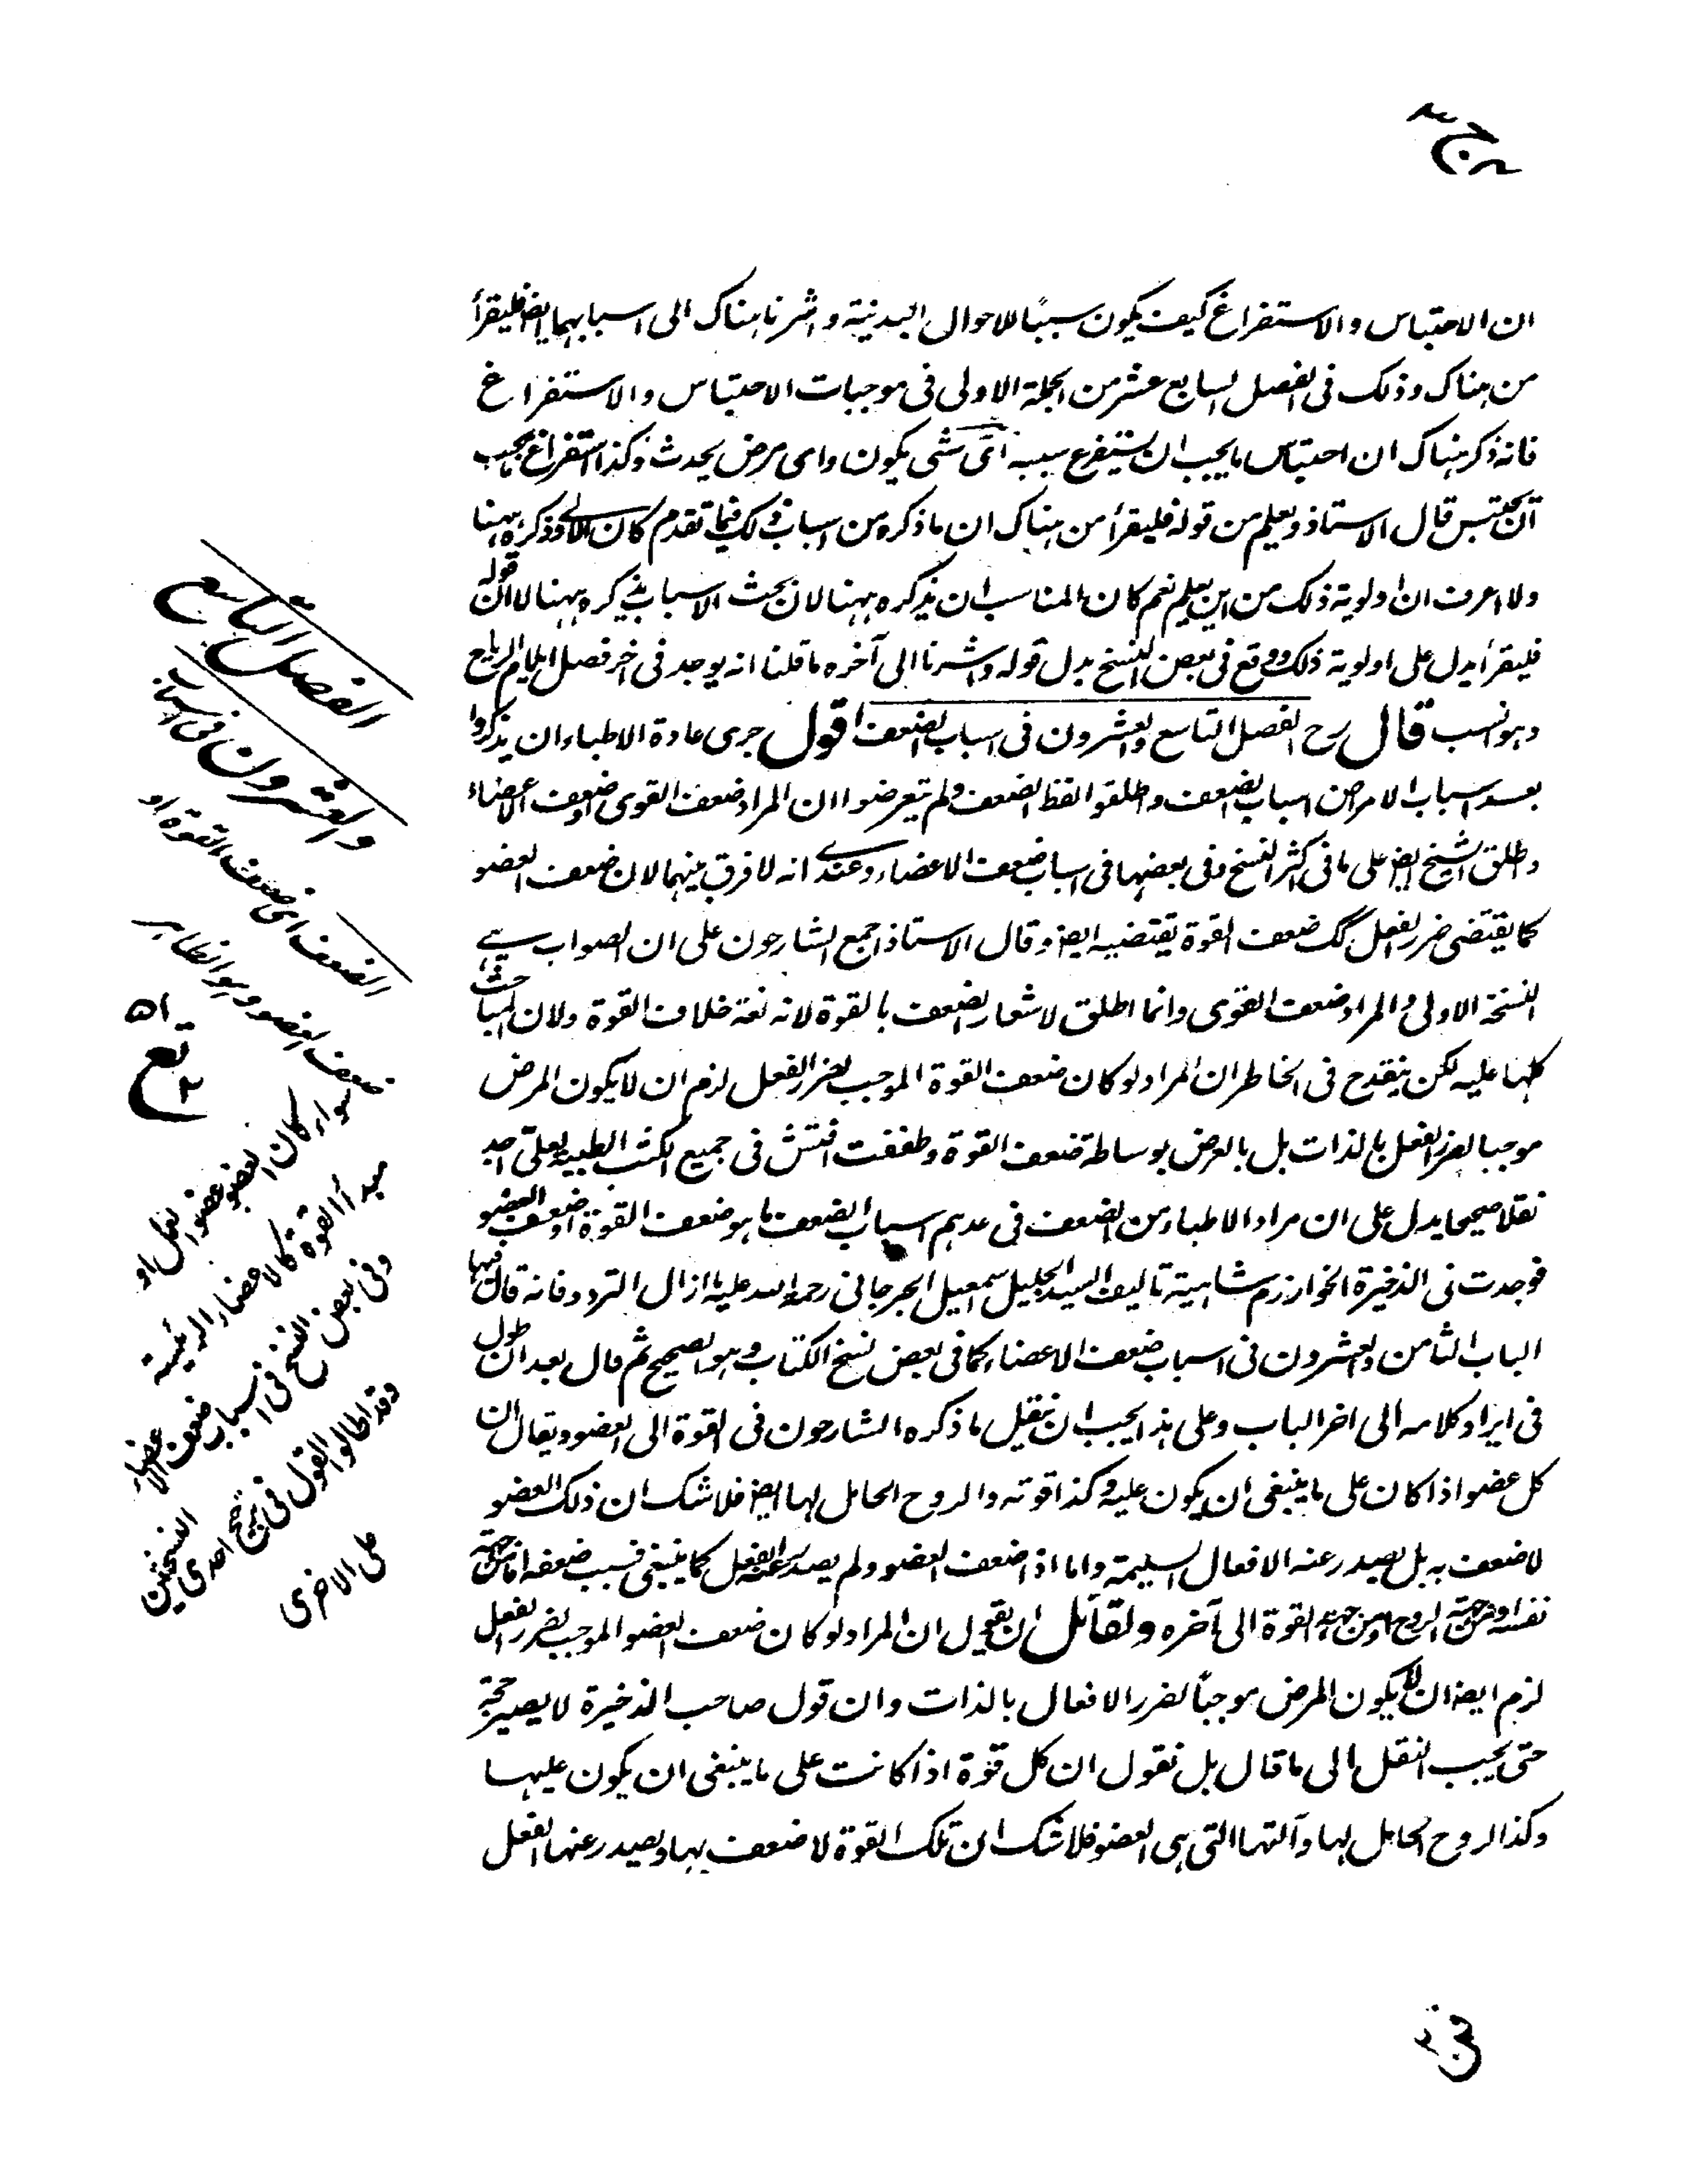 ان الاحتباس والاستفراغ كيف يكون سببًا للاحوال البدنية واشرنا هناك الى اسبابهما ايضا فليقرأ
من هناك وذلك فى الفصل السابع عشر من الجملة الاولى فى موجبات الاحتباس والاستفراغ
فانه ذكر هناك ان احتباس ما يجب ان يستفرغ سببه اى شى يكون واى مرض يحدث وكذا استفراغ ما يجب
ان يحتبس قال الاستاذ ويعلم من قوله فليقرأ من هناك ان ما ذكره من اسباب ذلك فيما تقدم كان وذكره ههنا
ولا اعرف ان اولوية ذلك من اين يعلم نعم كان المناسب ان يذكره ههنا لان بحث الاسباب يذكره ههنا لا ان قوله
فليقرأ يدل على اولوية ذلك ووقع فى بعض النسخ بدل قوله واشرنا الى آخره ما قلنا انه يوجد فى اخر فصل
وهو انسب قال رح الفصل التاسع والعشرون فى اسباب الضعف اقول جرى عادة الاطباء ان يذكروا
بعد اسباب الامراض اسباب الضعف واطلقوا لفظ الضعف ولم يتعرضوا ان المراد ضعف القوى او ضعف الاعضاء
واطلق الشيخ ايضا على ما فى اكثر النسخ وفى بعضها فى اسباب ضعف الاعضاء وعندى انه لا فرق بينهما لان ضعف العضو
كما يقتضى ضرر الفعل كك ضعف القوة يقتضيه ايضا وقال الاستاذ اجمع الشارحون على ان الصواب هى
النسخة الاولى والمراد ضعف القوى وانما اطلق لاشعار الضعف بالقوة لانه لغة خلاف القوة ولان المباحث
كلها عليه لكن ينقدح فى الخاطر ان المراد لو كان ضعف القوة الموجب لضرر الفعل لزم ان لا يكون المرض
موجبا لضرر الفعل بالذات بل بالعرض بوساطة ضعف القوة وطفقت افتش فى جميع الكتب الطبية لعلى اجد
نقلا صحيحا يدل على ان مراد الاطباء من الضعف فى عدهم اسباب الضعف ما هو ضعف القوة او ضعف العضو
فوجدت فى الذخيرة الخوارزم شاهية تاليف السيد الجليل اسمعيل الجرجانى رحمة الله عليه ما ازال التردد فانه قال فيها
الباب الثامن والعشرون فى اسباب ضعف الاعضاء كما فى بعض نسخ الكتاب وهو الصحيح ثم قال بعد ان طول
فى ايراد كلامه الى اخر الباب وعلى هذا يجب ان ينقل ما ذكره الشارحون فى القوة الى العضو ويقال ان
كل عضو اذا كان على ما ينبغى ان يكون عليه وكذا قوته والروح الحامل لها ايضا فلا شك ان ذلك العضو
لا ضعف به بل يصدر عنه الافعال السليمة واما اذا ضعف العضو ولم يصدر عنه الفعل كما ينبغى فسبب ضعفه اما من جهة
نفسه او من جهة الروح او من جهة القوة الى آخره ولقائل ان يقول ان المراد لو كان ضعف العضو الموجب لضرر الفعل
لزم ايضا ان لا يكون المرض موجبًا لضرر الافعال بالذات وان قول صاحب الذخيرة لا يصير حجة
حتى يجب النقل الى ما قال بل نقول ان كل قوة اذا كانت على ما ينبغى ان يكون عليها
وكذا الروح الحامل لها وآلتها التى هى العضو فلا شك ان تلك القوة لا ضعف بها ويصدر عنها الفعل
الفصل التاسع
والعشرون فى اسباب
الضعف اى ضعف القوة او
ضعف العضو وهو الظاهر
سواء كان العضو عضوا
مبدأ القوة كالاعضاء الرئيسة
وفى بعض النسخ فى اسباب ضعف الاعضاء
وقد اطالوا القول فى ترجيح احدى النسختين
على الاخرى